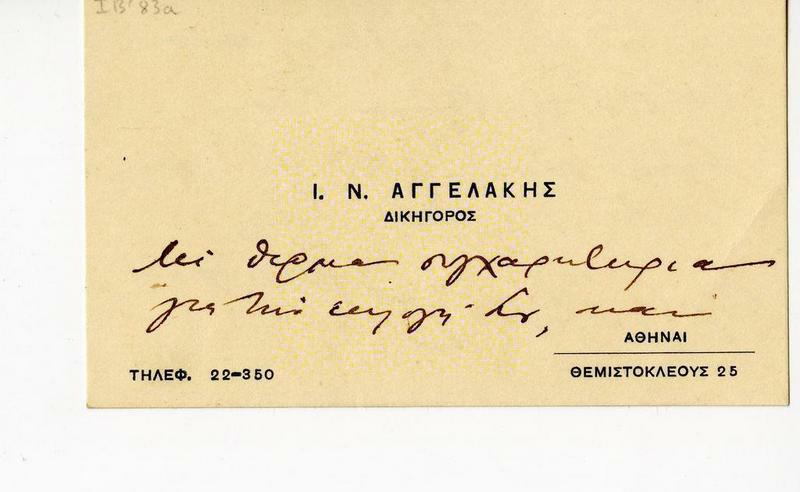 ΙΒ' 83α
Ι. Ν. ΑΓΓΕΛΑΚΗΣ
ΔΙΚΗΓΟΡΟΣ
Με θερμα συγχαρητηρια
για την εκλογή σου, και
ΑΘΗΝΑΙ
ΤΗΛΕΦ. 22-350
ΘΕΜΙΣΤΟΚΛΕΟΥΣ 25